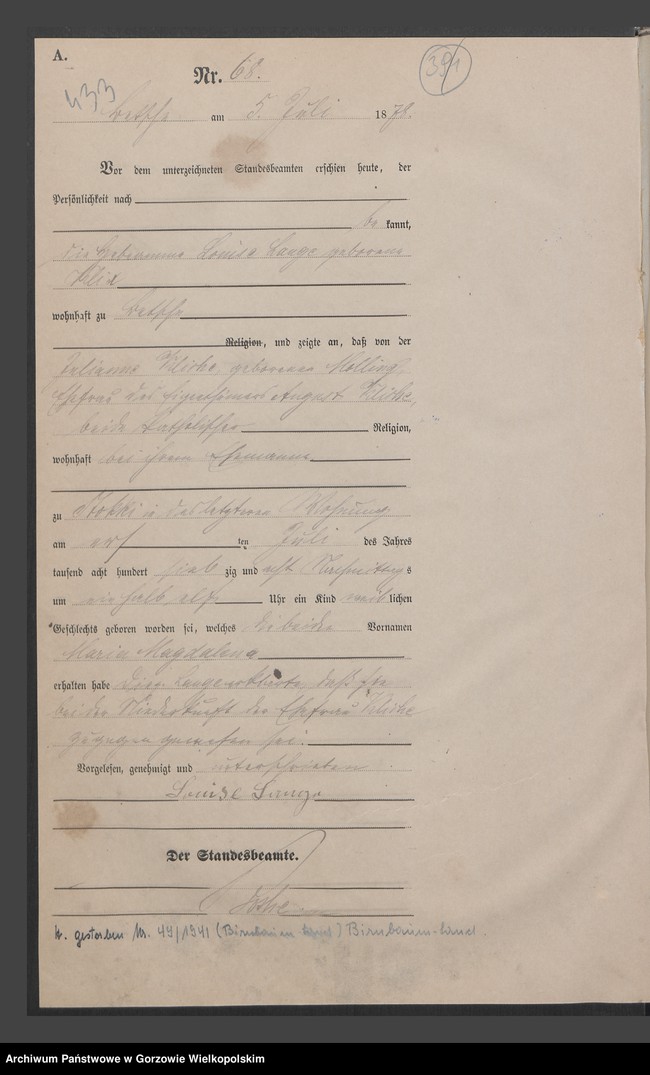 A.
391
Nr. 68.
433
Betsche am 5. Juli 1878.
Vor dem unterzeichneten Standesbeamten erschien heute, der
Persönlichkeit nach
be kannt,
die Hebeamme Louise Lange geborene
wohnhaft zu Betsche
Religion, und zeigte an, daß von der
Julianna geborenen
Ehefrau des Eigenthümers August
beide katholischer Religion,
wohnhaft bei ihrem Ehemanne
zu Stokki in des letzteren Wohnung
am ten Juli des Jahres
tausend acht hundert sieb zig und acht Nachmittags
um ein halb elf Uhr ein Kind weiblichen
Geschlechts geboren worden sei, welches die beiden Vornamen
Maria Magdalena
erhalten habe Die Lange erklärte, daß sie
bei der Niederkunft der Ehefrau
zugegen gewesen sei.
Vorgelesen, genehmigt und unterschrieben
Louise Lange
Der Standesbeamte.
gestorben Nr. 44/1941 (Birnbaum-land) Birnbaum-land.
Archiwum Państwowe w Gorzowie Wielkopolskim